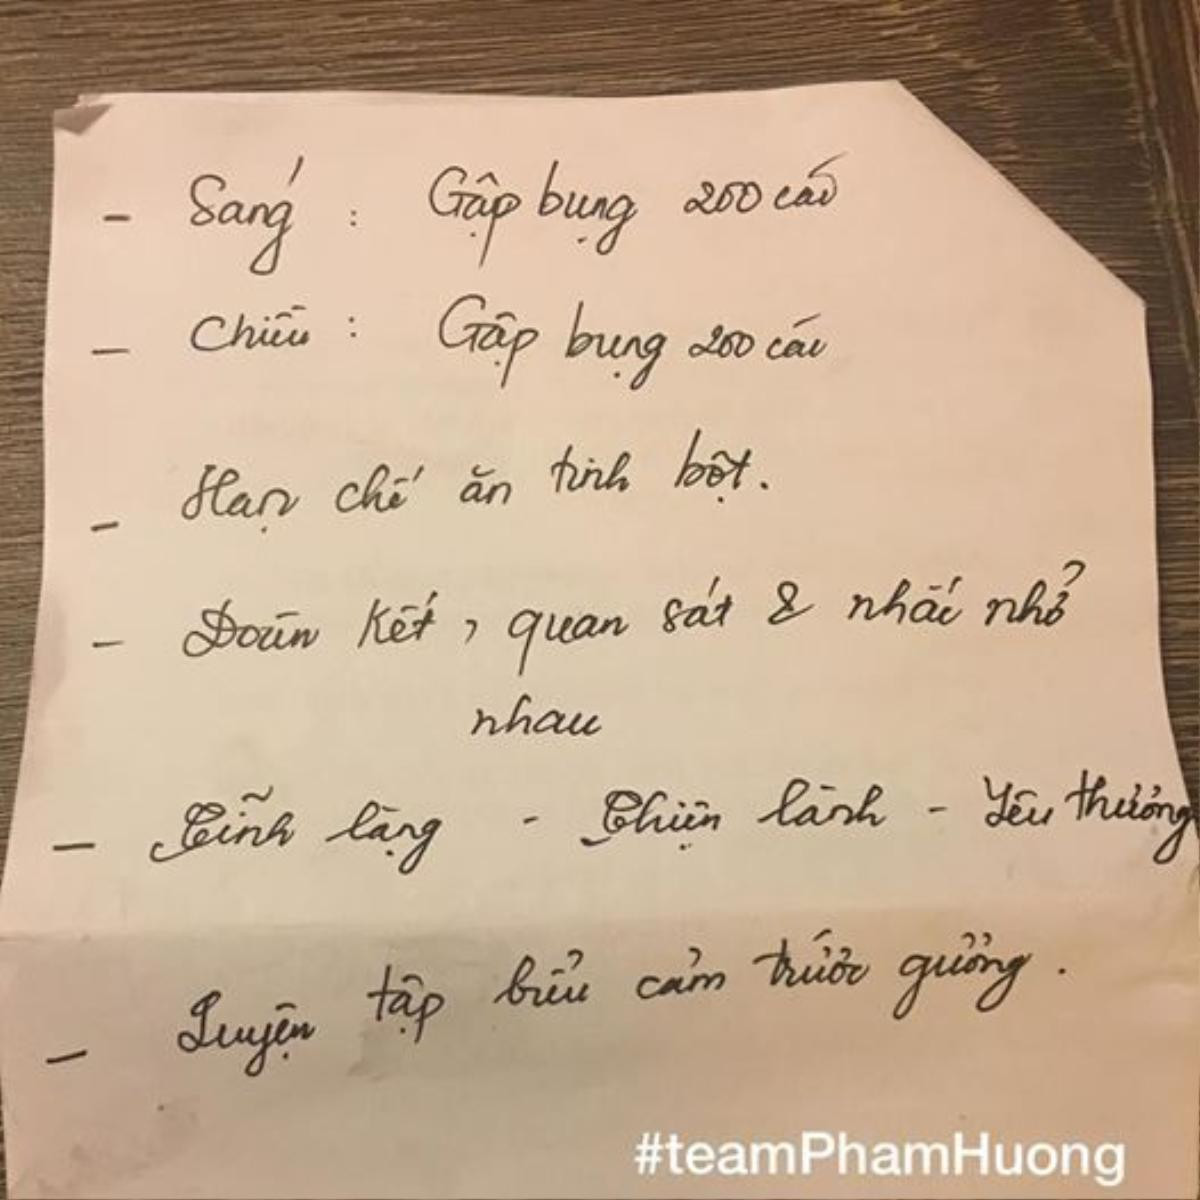 - Sáng : Gập bụng 200 cái
- Chiều : Gập bụng 200 cái
- Hạn chế ăn tinh bột.
- Đoàn kết, quan sát & nhắc nhở
nhau
- Tĩnh lặng - Thiện lành - Yêu thương
- Luyện tập biểu cảm trước gương.
#teamPhamHuong